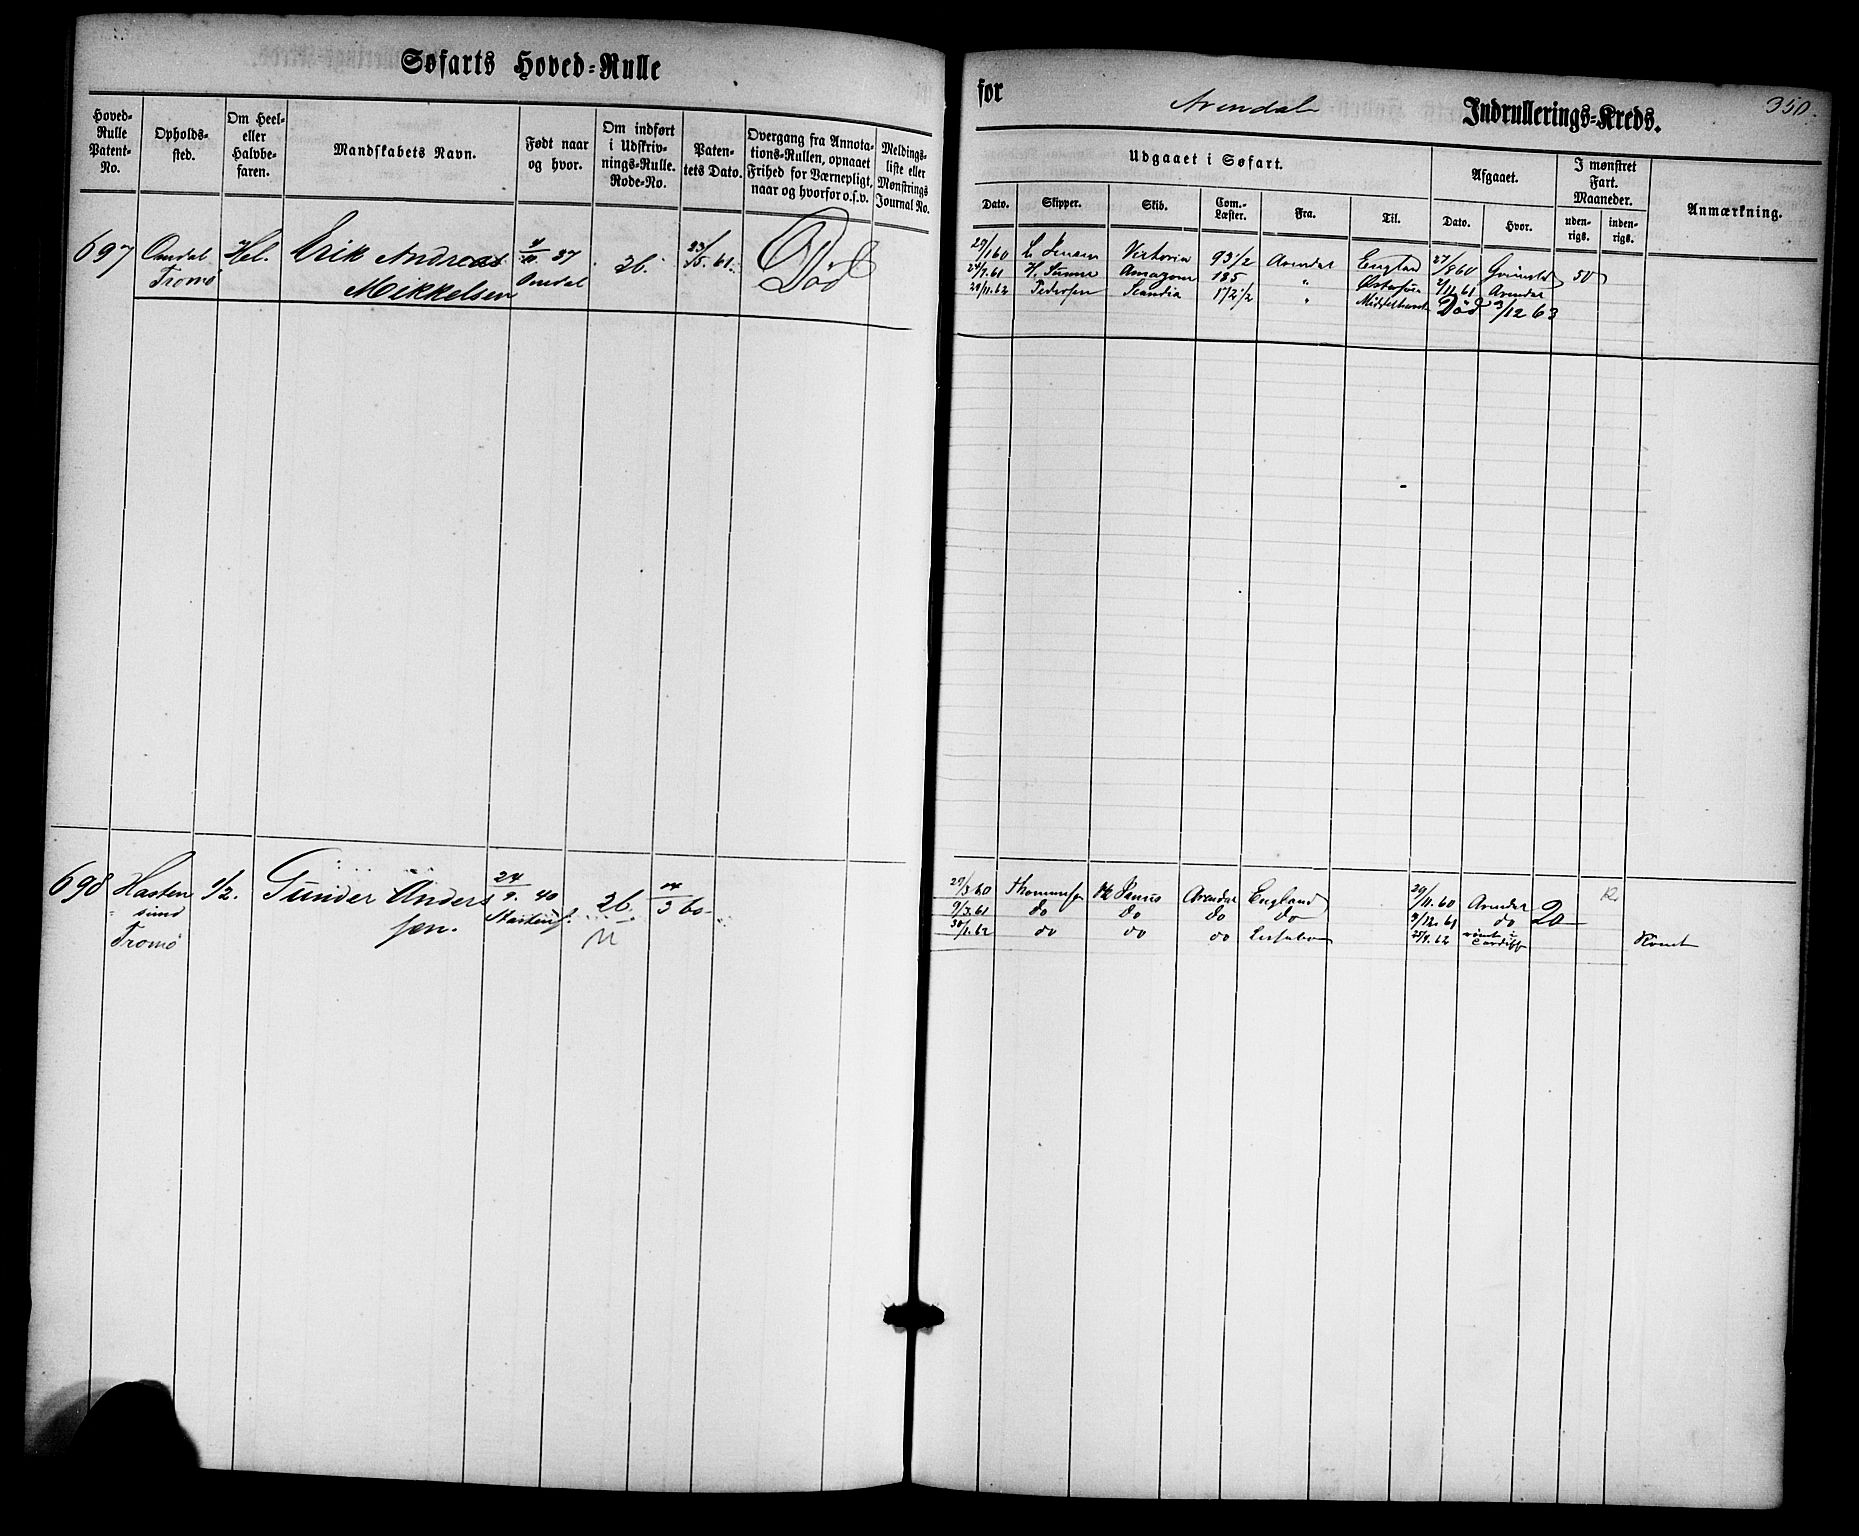 Søfarts Hoved-Rulle
for Arendals Indrullerings-Kreds. 350.
Hoved-Rulle Patent-No.
Opholds-sted.
Om Heel- eller Halvbe-faren.
Mandskabets Navn.
Født naar og hvor.
Om indført i Udskriv-nings-Rulle. Rode-No.
Paten-tets Dato.
Overgang fra Annota-tions-Rullen, opnaaet Frihed for Værnepligt, naar og hvorfor o.s.v.
Meldings-liste eller Mønstrings Journal No.
Udgaaet i Søfart.
Dato. Skipper. Skib. Com.-Læster. Fra. Til.
Afgaaet.
Dato. Hvor.
I mønstret Fart. Maaneder.
uden-rigs. inden-rigs.
Anmærkning.
697 Omdal Hel. Erik Andreas 37 26. 23/5. 61. Død
Tromø Mikkelsen Omdal
29/1 60 Victoria 93 1/2 Arendal England 27/8 60 Grimstad 50
24/7. 61 Amazone 185 " 2/11 61 Arendal
20/11. 62 Pedersen Scandia 172 1/2 " Død 3/12 63
698 Hasten 1/2. Gunder Anders 24/9. 40 26. 14/3 60
sund sen.
Tromø
29/3 60 Thommesen Arendal England 29/11. 60 Arendal 20
9/3. 61 do do do do 9/12. 61 do
30/1. 62 do do do 25/4. 62 rømt i Cardiff Rømt